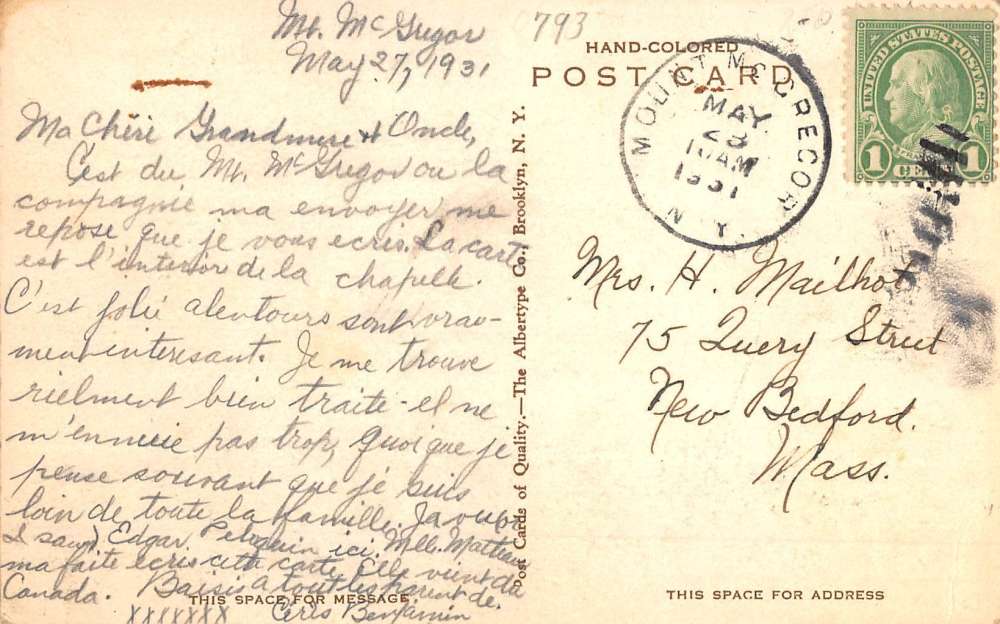 Mt. McGregor
May 27, 1931
793
HAND-COLORED
POST CARD
MOUNT McGREGOR
MAY
28
10AM
1931
N. Y.
UNITED STATES POSTAGE
FRANKLIN
1 CENT 1
Ma Chére Grandmere et Oncle,
C'est du Mt. McGregor ou la
compagnie ma envoyer me
repose que je vous ecris. La carte
est l'interior de la chapelle.
C'est jolie alentours sont vrai-
ment interesant. Je me trouve
rielment bien traite - el ne
m'ennuie pas trop, quoique je
pense souvant que je suis
loin de toute la famille. Ja vue
I saw) Edgar Peloquin ici. Mlle. Matteau
ma faite ecris cette carte. Elle vient du
Canada. Baisis a tout les parent de.
XXXXXXX Benjamin
THIS SPACE FOR MESSAGE
Post Cards of Quality.—The Albertype Co., Brooklyn, N. Y.
Mrs. H. Mailhot
75 Query Street
New Bedford.
Mass.
THIS SPACE FOR ADDRESS